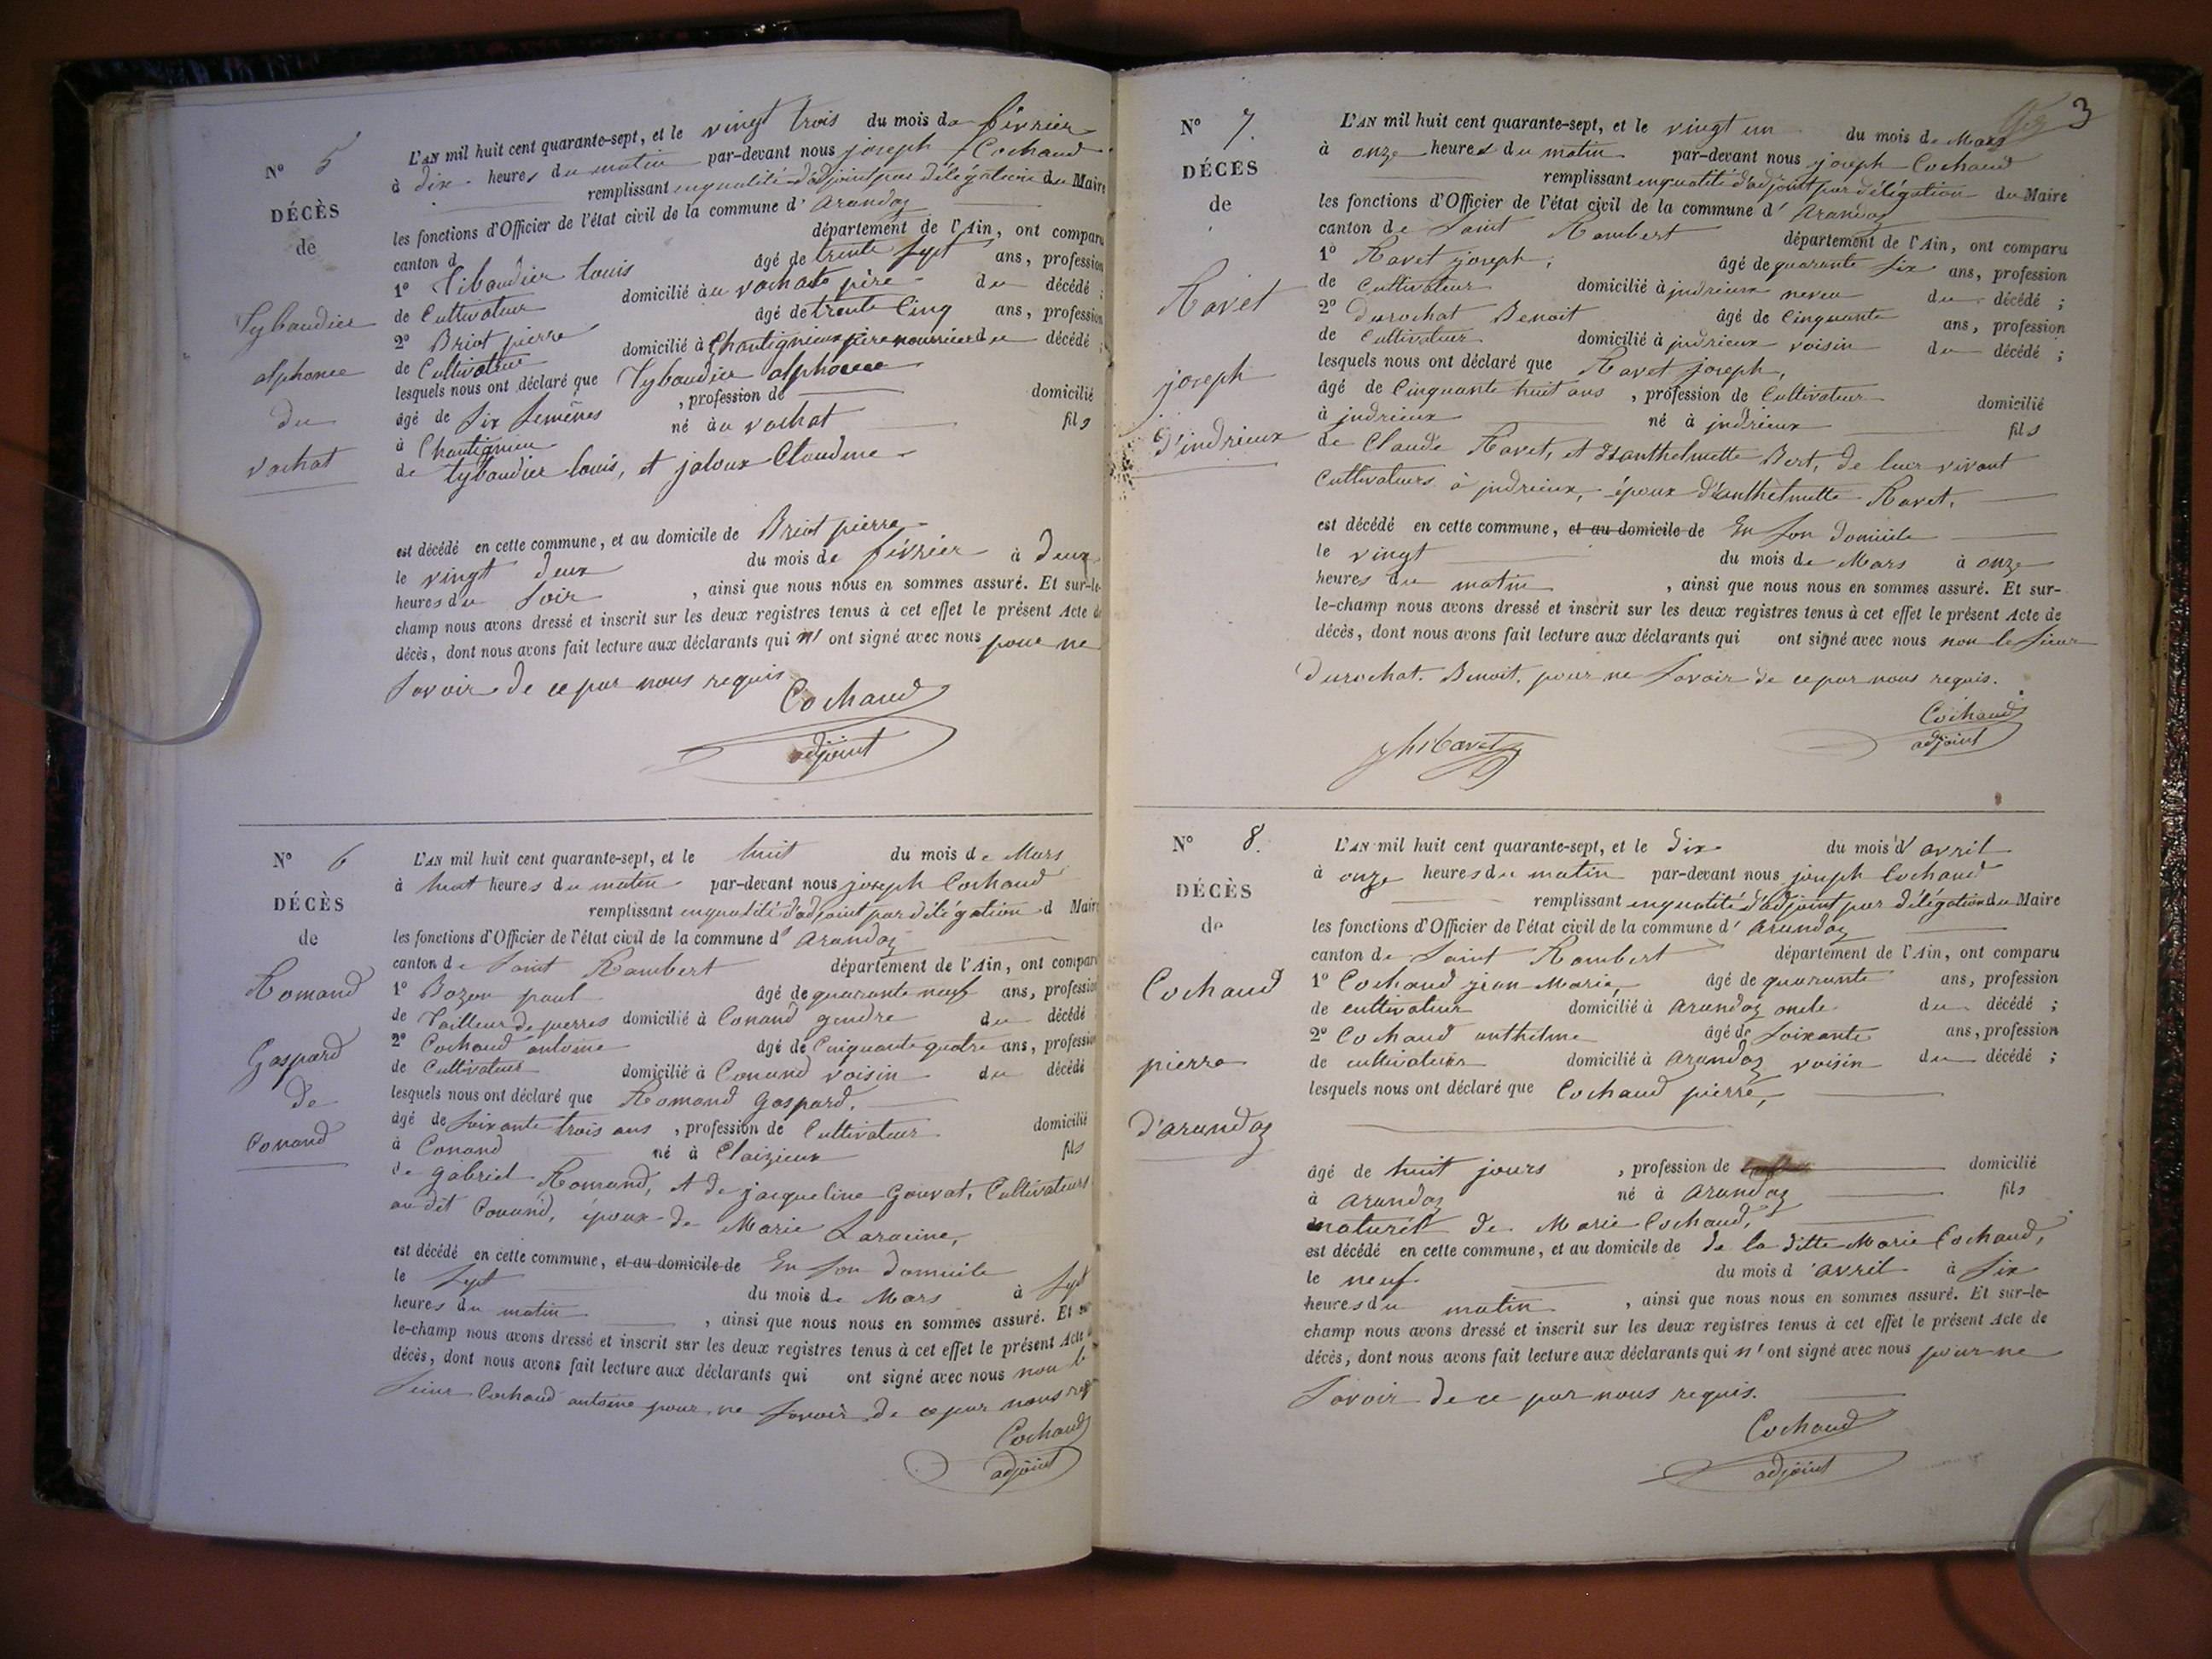 N° 5
DÉCÈS
de
Tybaudier
alphonce
du
vachat
L'AN mil huit cent quarante-sept, et le vingt trois du mois de février
à dix heures du matin par-devant nous joseph Cochaud
remplissant enqualité d'adjoint par délégation du Maire
les fonctions d'Officier de l'état civil de la commune d' arandaz
canton d département de l'Ain, ont comparu
1° Tibaudier Louis âgé de trente sept ans, profession
de Cultivateur domicilié àu vachat père du décédé ;
2° Briot pierre âgé de trente Cinq ans, profession
de Cultivateur domicilié à Chantignieux père nourricier du décédé ;
lesquels nous ont déclaré que Tybaudier alphonce
âgé de six semènes , profession de domicilié
à Chantignieu né àu vachat fils
de tybaudier louis, et jaloux Claudine
est décédé en cette commune, et au domicile de Briot pierre
le vingt deux du mois de février à deux
heures du soir , ainsi que nous nous en sommes assuré. Et sur-le-
champ nous avons dressé et inscrit sur les deux registres tenus à cet effet le présent Acte de
décès, dont nous avons fait lecture aux déclarants qui n' ont signé avec nous pour ne
savoir de ce par nous requis
Cochaud
adjoint
N° 6
DÉCÈS
de
Romand
Gaspard
de
Conand
L'AN mil huit cent quarante-sept, et le huit du mois de Mars
à huit heures du matin par-devant nous joseph Cochaud
remplissant enqualité d'adjoint par délégation d Maire
les fonctions d'Officier de l'état civil de la commune d' arandaz
canton de Saint Rambert département de l'Ain, ont comparu
1° Bozon paul âgé de quarante neuf ans, profession
de Tailleur de pierres domicilié à Conand gendre du décédé
2° Cochaud antoine âgé de Cinquante quatre ans, profession
de Cultivateur domicilié à Conand voisin du décédé
lesquels nous ont déclaré que Romand Gaspard,
âgé de soixante trois ans , profession de Cultivateur domicilié
à Conand né à Claizieux fils
de gabriel Romand, et de jacqueline Gouvat, Cultivateurs
au dit Conand, époux de Marie Laracine,
est décédé en cette commune, et au domicile de En son domicile
le sept du mois de Mars à sept
heures du matin , ainsi que nous nous en sommes assuré. Et sur
le-champ nous avons dressé et inscrit sur les deux registres tenus à cet effet le présent Acte
décès, dont nous avons fait lecture aux déclarants qui ont signé avec nous non le
sieur Cochaud antoine pour ne savoir de ce par nous
Cochaud
adjoint
3
N° 7.
DÉCÈS
de
Ravet
joseph
d'indrieux
L'AN mil huit cent quarante-sept, et le vingt un du mois de Mars
à onze heures du matin par-devant nous joseph Cochaud
remplissant enqualité d'adjoint par délégation du Maire
les fonctions d'Officier de l'état civil de la commune d' arandaz
canton de Saint Rambert département de l'Ain, ont comparu
1° Ravet joseph, âgé de quarante six ans, profession
de Cultivateur domicilié à jndrieux neveu du décédé ;
2° Durochat Benoit âgé de Cinquante ans, profession
de Cultivateur domicilié à jndrieux voisin du décédé ;
lesquels nous ont déclaré que Ravet joseph,
âgé de Cinquante huit ans , profession de Cultivateur domicilié
à jndrieux né à jndrieux fils
de Claude Ravet, et d'anthelmette Bert, de leur vivant
Cultivateurs à jndrieux, époux d'anthelmette Ravet,
est décédé en cette commune, et au domicile de En son Domicile
le vingt du mois de Mars à onze
heures du matin , ainsi que nous nous en sommes assuré. Et sur-
le-champ nous avons dressé et inscrit sur les deux registres tenus à cet effet le présent Acte de
décès, dont nous avons fait lecture aux déclarants qui ont signé avec nous non le sieur
Durochat. Benoit, pour ne savoir de ce par nous requis.
Cochaud
adjoint
jh Ravet
N° 8.
DÉCÈS
de
Cochaud
pierre
d'arandaz
L'AN mil huit cent quarante-sept, et le dix du mois d'avril
à onze heures du matin par-devant nous joseph Cochaud
remplissant enqualité d'adjoint par délégation du Maire
les fonctions d'Officier de l'état civil de la commune d' arandaz
canton de Saint Rambert département de l'Ain, ont comparu
1° Cochaud jean Marie, âgé de quarante ans, profession
de cultivateur domicilié à arandaz oncle du décédé ;
2° Cochaud anthelme âgé de soixante ans, profession
de cultivateur domicilié à arandaz voisin du décédé ;
lesquels nous ont déclaré que Cochaud pierre,
âgé de huit jours , profession de domicilié
à arandaz né à arandaz fils
naturél de Marie Cochaud,
est décédé en cette commune, et au domicile de de la ditte Marie Cochaud,
le neuf du mois d'avril à six
heures du matin , ainsi que nous nous en sommes assuré. Et sur-le-
champ nous avons dressé et inscrit sur les deux registres tenus à cet effet le présent Acte de
décès, dont nous avons fait lecture aux déclarants qui n' ont signé avec nous pour ne
savoir de ce par nous requis.
Cochaud
adjoint